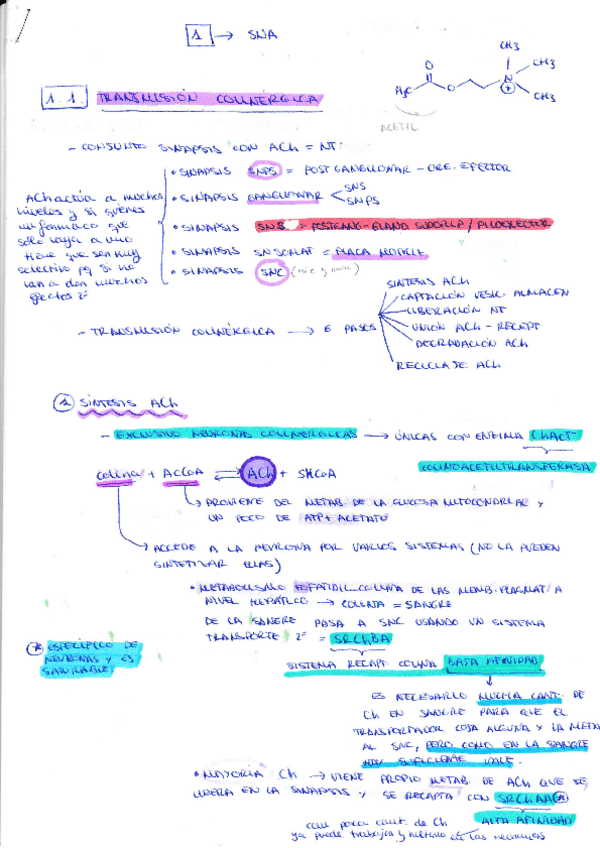 1 → SNA
1.1. TRANSMISIÓN COLINÉRGICA
O
H3C
O
N
CH3
CH3
CH3
ACETIL
- CONJUNTO SINAPSIS CON ACh = NT:
• SINAPSIS SNPS = POSTGANGLIONAR - ORG. EFECTOR
• SINAPSIS GANGLIONAR < SNS
SNPS
• SINAPSIS SNS = POSTGANG - GLAND SUDORIP / PILOERECTOR
• SINAPSIS SN SOMAT = PLACA MOTRIZ
• SINAPSIS SNC (nic y musc)
ACh actúa a muchos
niveles y si quieres
un fármaco que
sólo vaya a uno
tiene que ser muy
selectivo pq si no
van a dar muchos
efectos 2º
- TRANSMISIÓN COLINÉRGICA → 6 PASOS
SÍNTESIS ACh
CAPTACIÓN VESIC. ALMACEN
LIBERACIÓN NT
UNIÓN ACh - RECEPT
DEGRADACIÓN ACh
RECICLAJE ACh
1 SÍNTESIS ACh
- EXCLUSIVO NEURONAS COLINÉRGICAS → ÚNICAS CON ENZIMA ChACT
COLINOACETILTRANSFERASA
Colina + ACCoA ⇌ ACh + SHCoA
→ PROVIENE DEL METAB. DE LA GLUCOSA MITOCONDRIAL Y
UN POCO DE ATP + ACETATO
→ ACCEDE A LA NEURONA POR VARIOS SISTEMAS (NO LA PUEDEN
SINTETIZAR ELLAS)
• METABOLISMO FOSFATIDIL COLINA DE LAS MEMB. PLASMAT. A
NIVEL HEPÁTICO → COLINA = SANGRE
DE LA SANGRE PASA A SNC USANDO UN SISTEMA
TRANSPORTE 2º = SRChBA
SISTEMA RECAPT. COLINA BAJA AFINIDAD
* ESPECÍFICO DE
NEURONAS Y ES
SATURABLE
ES NECESARIO MUCHA CANT. DE
Ch EN SANGRE PARA QUE EL
TRANSPORTADOR COJA ALGUNA Y LA META
AL SNC, PERO COMO EN LA SANGRE
HAY SUFICIENTE VALE.
• MAYORÍA Ch → VIENE PROPIO METAB. DE ACh QUE SE
LIBERA EN LA SINAPSIS Y SE RECAPTA CON SRChAA *
ALTA AFINIDAD
con poca cant. de Ch
ya puede trabajar y meterlo en las neuronas